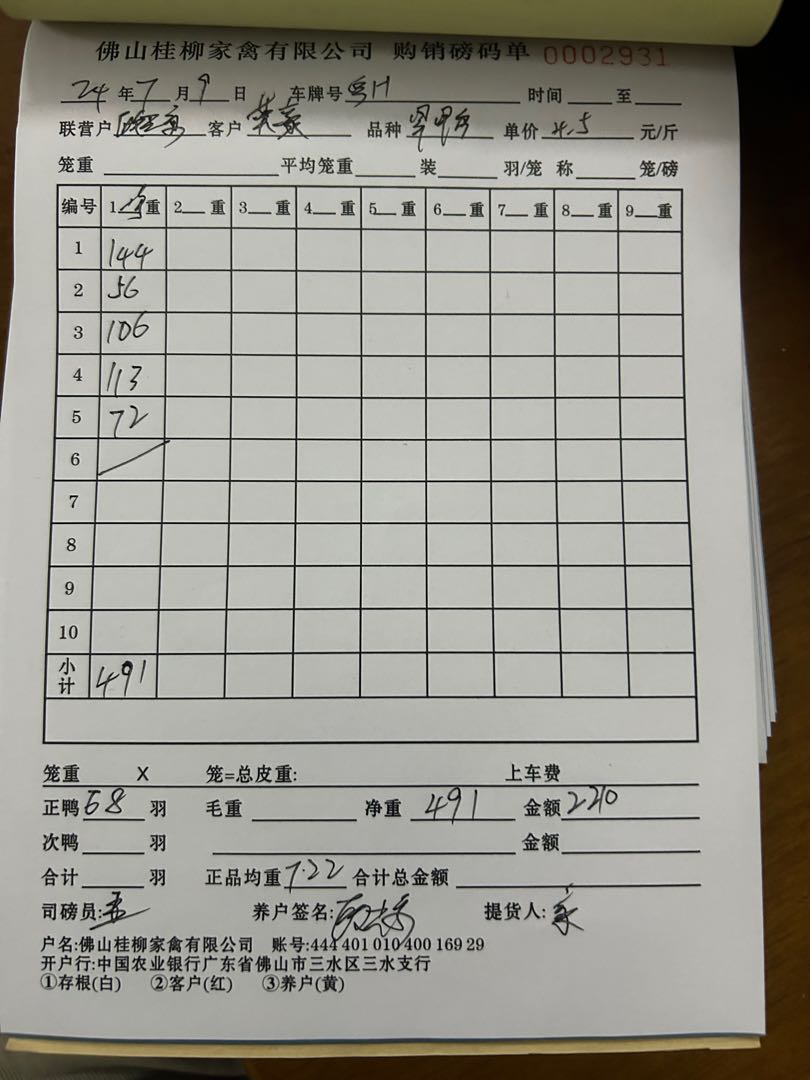 佛山桂柳家禽有限公司 购销磅码单 0002931
24 年 7 月 9 日 车牌号 粤H 时间 至
联营户 客户 英豪 品种 单价 4.5 元/斤
笼重 平均笼重 装 羽/笼 称 笼/磅
编号 1 重 2 重 3 重 4 重 5 重 6 重 7 重 8 重 9 重
1 144
2 56
3 106
4 113
5 72
6
7
8
9
10
小计 491
笼重 X 笼=总皮重: 上车费
正鸭 68 羽 毛重 净重 491 金额 2210
次鸭 羽 金额
合计 羽 正品均重 7.22 合计总金额
司磅员: 孟 养户签名: 提货人: 豪
户名:佛山桂柳家禽有限公司 账号:444 401 010 400 169 29
开户行:中国农业银行广东省佛山市三水区三水支行
①存根(白) ②客户(红) ③养户(黄)